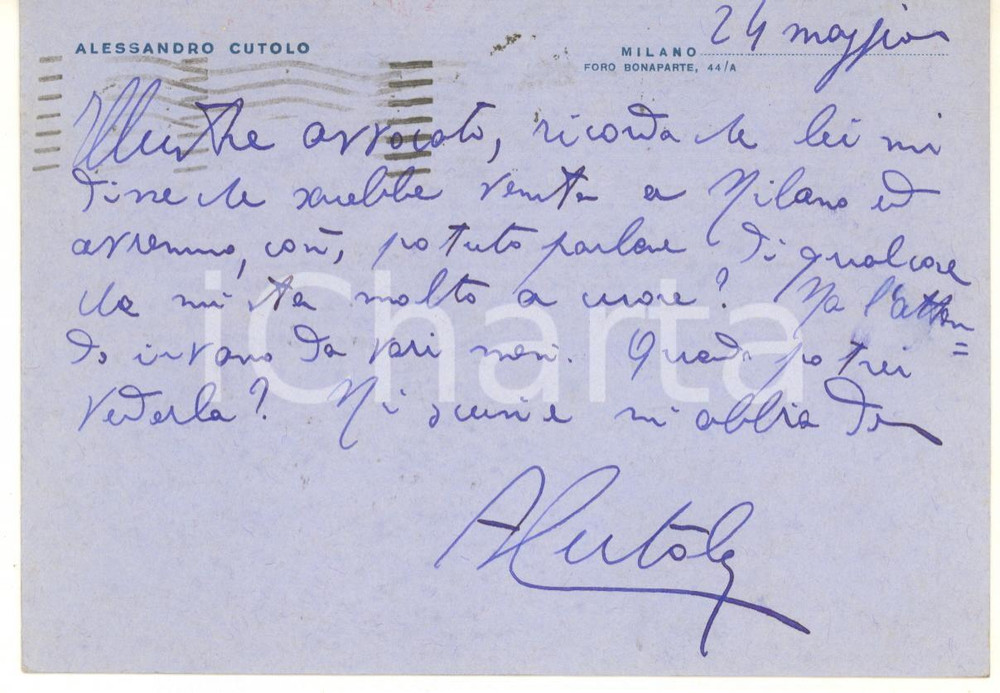 ALESSANDRO CUTOLO
MILANO 24 maggio
FORO BONAPARTE, 44/A
Illustre avvocato, ricorda che lei mi
disse che sarebbe venuta a Milano ed
avremmo, così, potuto parlare di qualcosa
che mi sta molto a cuore? Ma l'atten=
do invano da vari mesi. Quando potrei
vederla? Mi scusi e mi abbia
ACutolo
iCharta